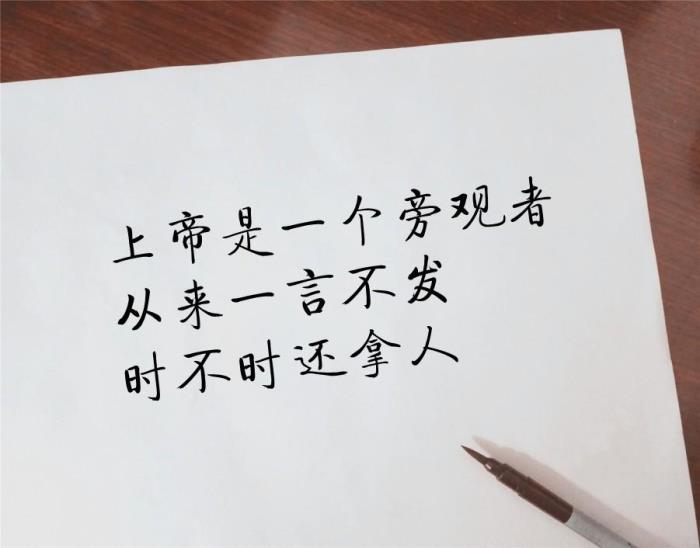 上帝是一个旁观者
从来一言不发
时不时还拿人